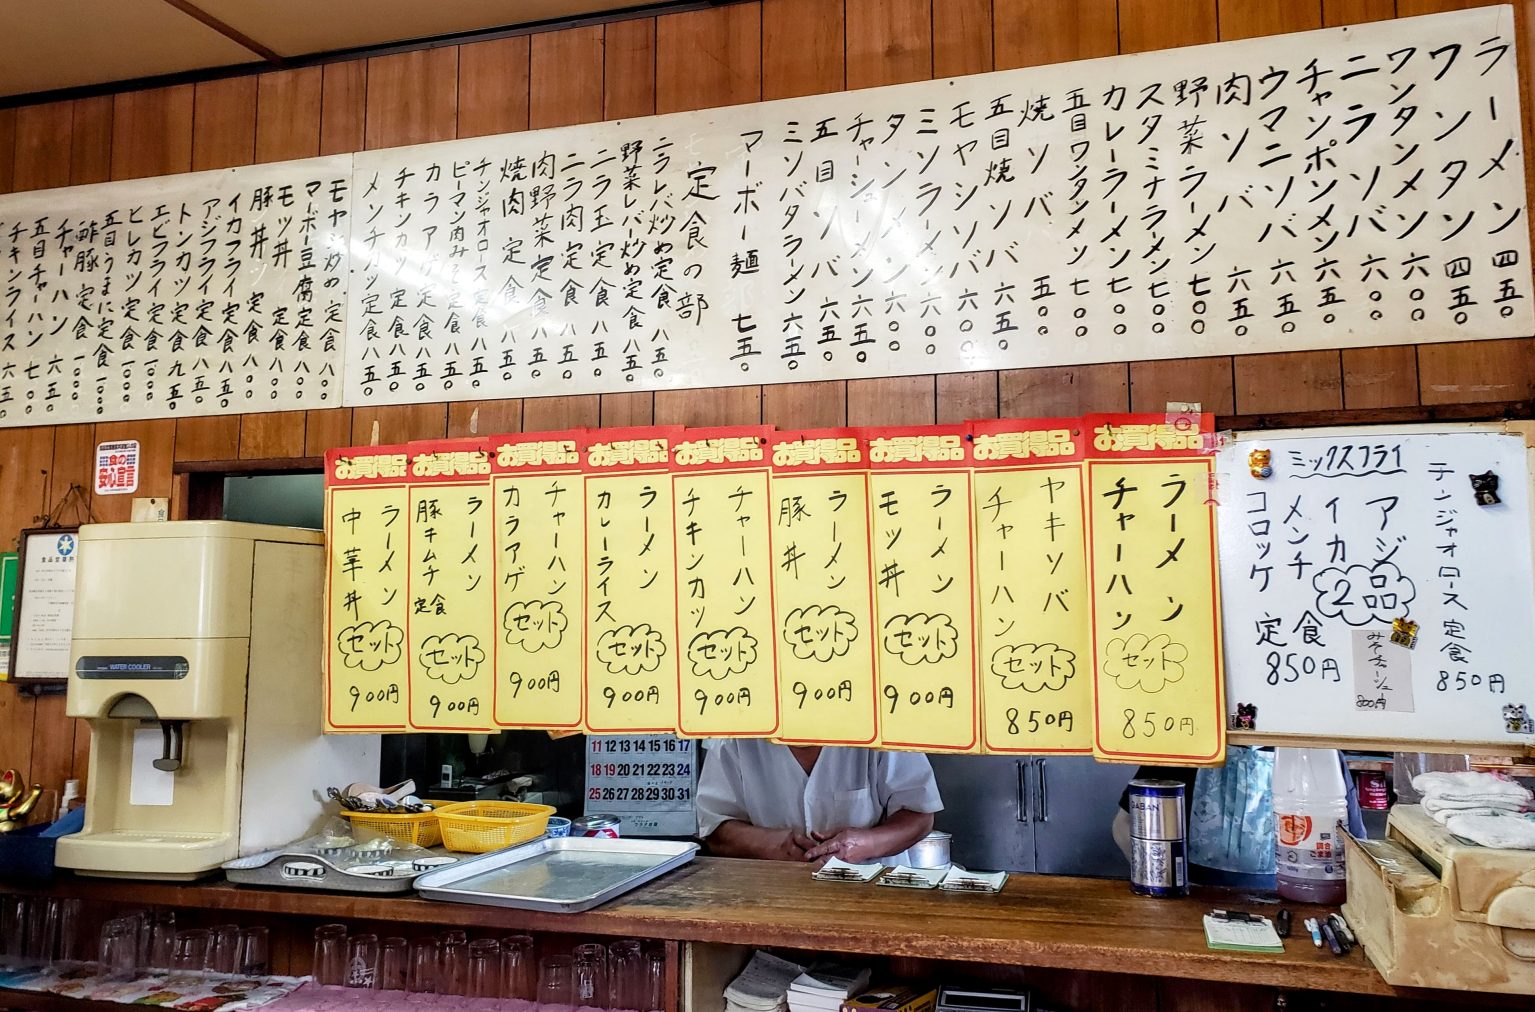 ラーメン 四五〇
ワンタン 四五〇
ワンタンメン 六〇〇
ニラソバ 六〇〇
チャンポンメン 六五〇
ウマニソバ 六五〇
肉ソバ 六五〇
野菜ラーメン 七〇〇
スタミナラーメン 七〇〇
カレーラーメン 七〇〇
五目ワンタンメン 七〇〇
焼ソバ 五〇〇
五目焼ソバ 六五〇
モヤシソバ 六〇〇
ミソラーメン 六〇〇
タンメン 六〇〇
チャーシューメン 六五〇
五目ソバ 六五〇
ミソバタラーメン 六五〇
マーボー麺 七五〇
定食の部
ニラレバ炒め定食 八五〇
野菜レバー炒め定食 八五〇
ニラ玉定食 八五〇
ニラ肉定食 八五〇
肉野菜定食 八五〇
焼肉定食 八五〇
チンジャオロース定食 八五〇
ピーマン肉みそ定食 八五〇
カラアゲ定食 八五〇
チキンカツ定食 八五〇
メンチカツ定食 八五〇
モヤシ炒め定食 八〇〇
マーボー豆腐定食 八〇〇
モツ丼 定食 八〇〇
豚丼 定食 八〇〇
イカフライ定食 八五〇
アジフライ定食 八五〇
トンカツ定食 九五〇
エビフライ定食 一〇〇〇
ヒレカツ定食 一〇〇〇
五目うまに定食 一〇〇〇
酢豚定食 一〇〇〇
チャーハン 六五〇
五目チャーハン 七〇〇
チキンライス 六五〇
お買得品
ラーメン
チャーハン
セット
850円
お買得品
ヤキソバ
チャーハン
セット
850円
お買得品
ラーメン
モツ丼
セット
900円
お買得品
ラーメン
豚丼
セット
900円
お買得品
チャーハン
チキンカツ
セット
900円
お買得品
ラーメン
カレーライス
セット
900円
お買得品
チャーハン
カラアゲ
セット
900円
お買得品
ラーメン
豚キムチ定食
セット
900円
お買得品
ラーメン
中華丼
セット
900円
チンジャオロース定食
850円
ミックスフライ
アジ
イカ
メンチ
コロッケ
2品
定食
850円
みそチャーシュー
800円
食の
安心宣言
WATER COOLER
11 12 13 14 15 16 17
18 19 20 21 22 23 24
25 26 27 28 29 30 31
GABAN
調合
ごま油